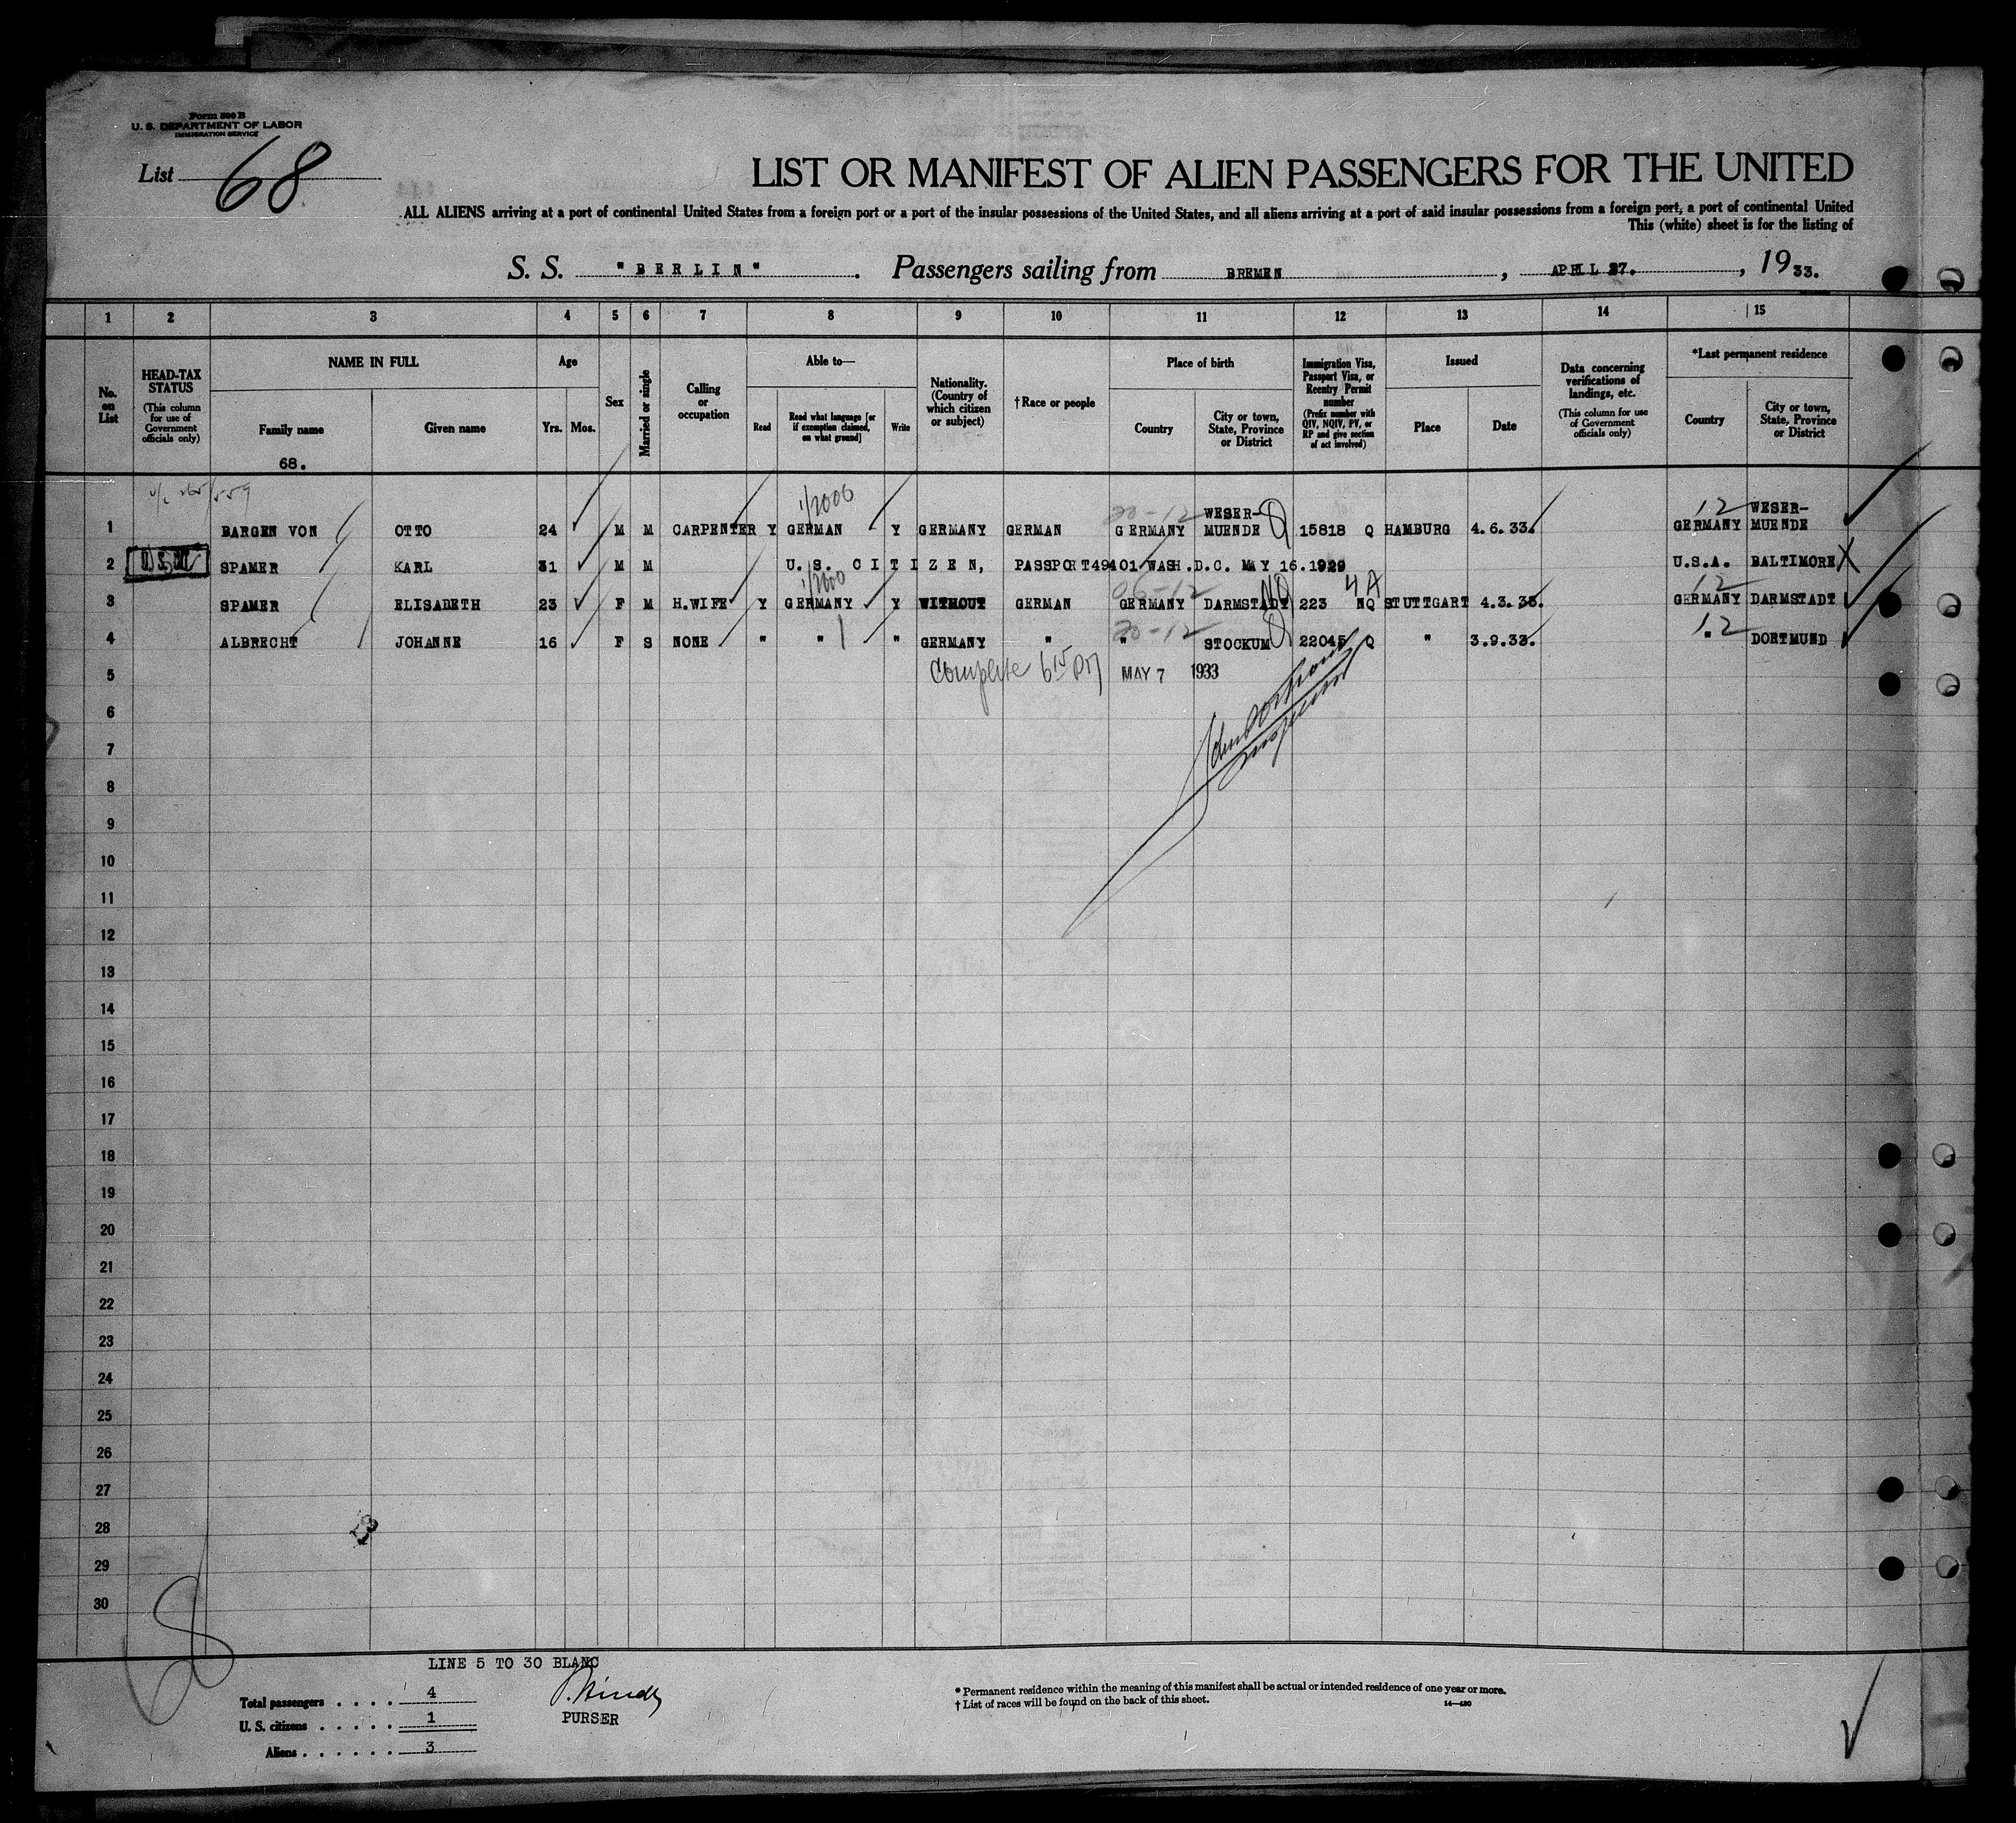 Form 500 B
U. S. DEPARTMENT OF LABOR
IMMIGRATION SERVICE
List 68
LIST OR MANIFEST OF ALIEN PASSENGERS FOR THE UNITED
ALL ALIENS arriving at a port of continental United States from a foreign port or a port of the insular possessions of the United States, and all aliens arriving at a port of said insular possessions from a foreign port, a port of continental United
This (white) sheet is for the listing of
S. S. "BERLIN". Passengers sailing from BREMEN, APRIL 27., 1933.
1 2 3 4 5 6 7 8 9 10 11 12 13 14 15
No. on List
HEAD-TAX STATUS
(This column for use of Government officials only)
NAME IN FULL
Family name
Given name
68.
Age
Yrs. Mos.
Sex
Married or single
Calling or occupation
Able to—
Read
Read what language [or if exemption claimed, on what ground]
Write
Nationality. (Country of which citizen or subject)
†Race or people
Place of birth
Country
City or town, State, Province or District
Immigration Visa, Passport Visa, or Reentry Permit number
(Prefix number with QIV, NQIV, PV, or RP and give section of act involved)
Issued
Place
Date
Data concerning verifications of landings, etc.
(This column for use of Government officials only)
*Last permanent residence
Country
City or town, State, Province or District
1 BARGEN VON OTTO 24 M M CARPENTER Y GERMAN Y GERMANY GERMAN 20-12 GERMANY WESER-MUENDE Q 15818 Q HAMBURG 4.6.33. 12 GERMANY WESER-MUENDE
2 SPAMER KARL 31 M M U.S. CITIZEN, PASSPORT 49401 WASH.D.C. MAY 16.1929 U.S.A. BALTIMORE X
3 SPAMER ELISABETH 23 F M H.WIFE Y GERMANY Y WITHOUT GERMAN 06-12 GERMANY DARMSTADT NQ 223 4A NQ STUTTGART 4.3.33. 12 GERMANY DARMSTADT
4 ALBRECHT JOHANNE 16 F S NONE " " " GERMANY " 20-12 " STOCKUM Q 22045 Q " 3.9.33. 12 " DORTMUND
5 Complete MAY 7 1933
6
7
8
9
10
11
12
13
14
15
16
17
18
19
20
21
22
23
24
25
26
27
28
29
30
LINE 5 TO 30 BLANC
Total passengers . . . . 4
U. S. citizens . . . . . 1
Aliens . . . . . . 3
PURSER
* Permanent residence within the meaning of this manifest shall be actual or intended residence of one year or more.
† List of races will be found on the back of this sheet.
14—430